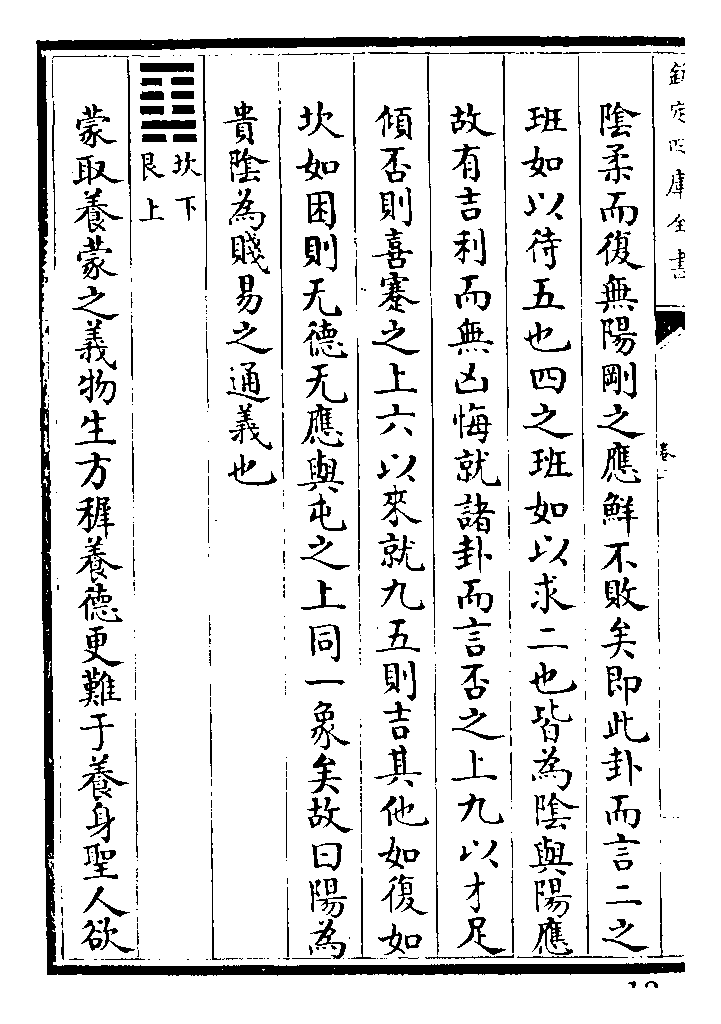 欽定四庫全書
卷一
陰柔而復無陽剛之應鮮不敗矣即此卦而言二之
班如以待五也四之班如以求二也皆為陰與陽應
故有吉利而無凶悔就諸卦而言否之上九以才足
傾否則喜蹇之上六以來就九五則吉其他如復如
坎如困則无德无應與屯之上同一象矣故曰陽為
貴陰為賤易之通義也
坎下
艮上
蒙取養蒙之義物生方穉養德更難于養身聖人欲